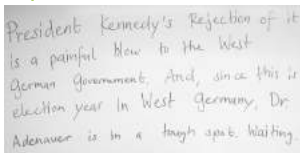 President Kennedy's Rejection of it
is a painful blow to the West
German Government. And, since this is
election year in West Germany, Dr
Adenauer is in a tough spot. Waiting